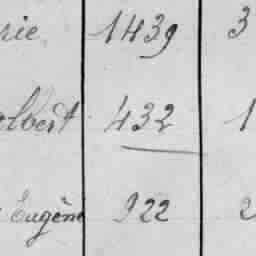 rie 1439 3
lbert 432 1
Eugène 922 2